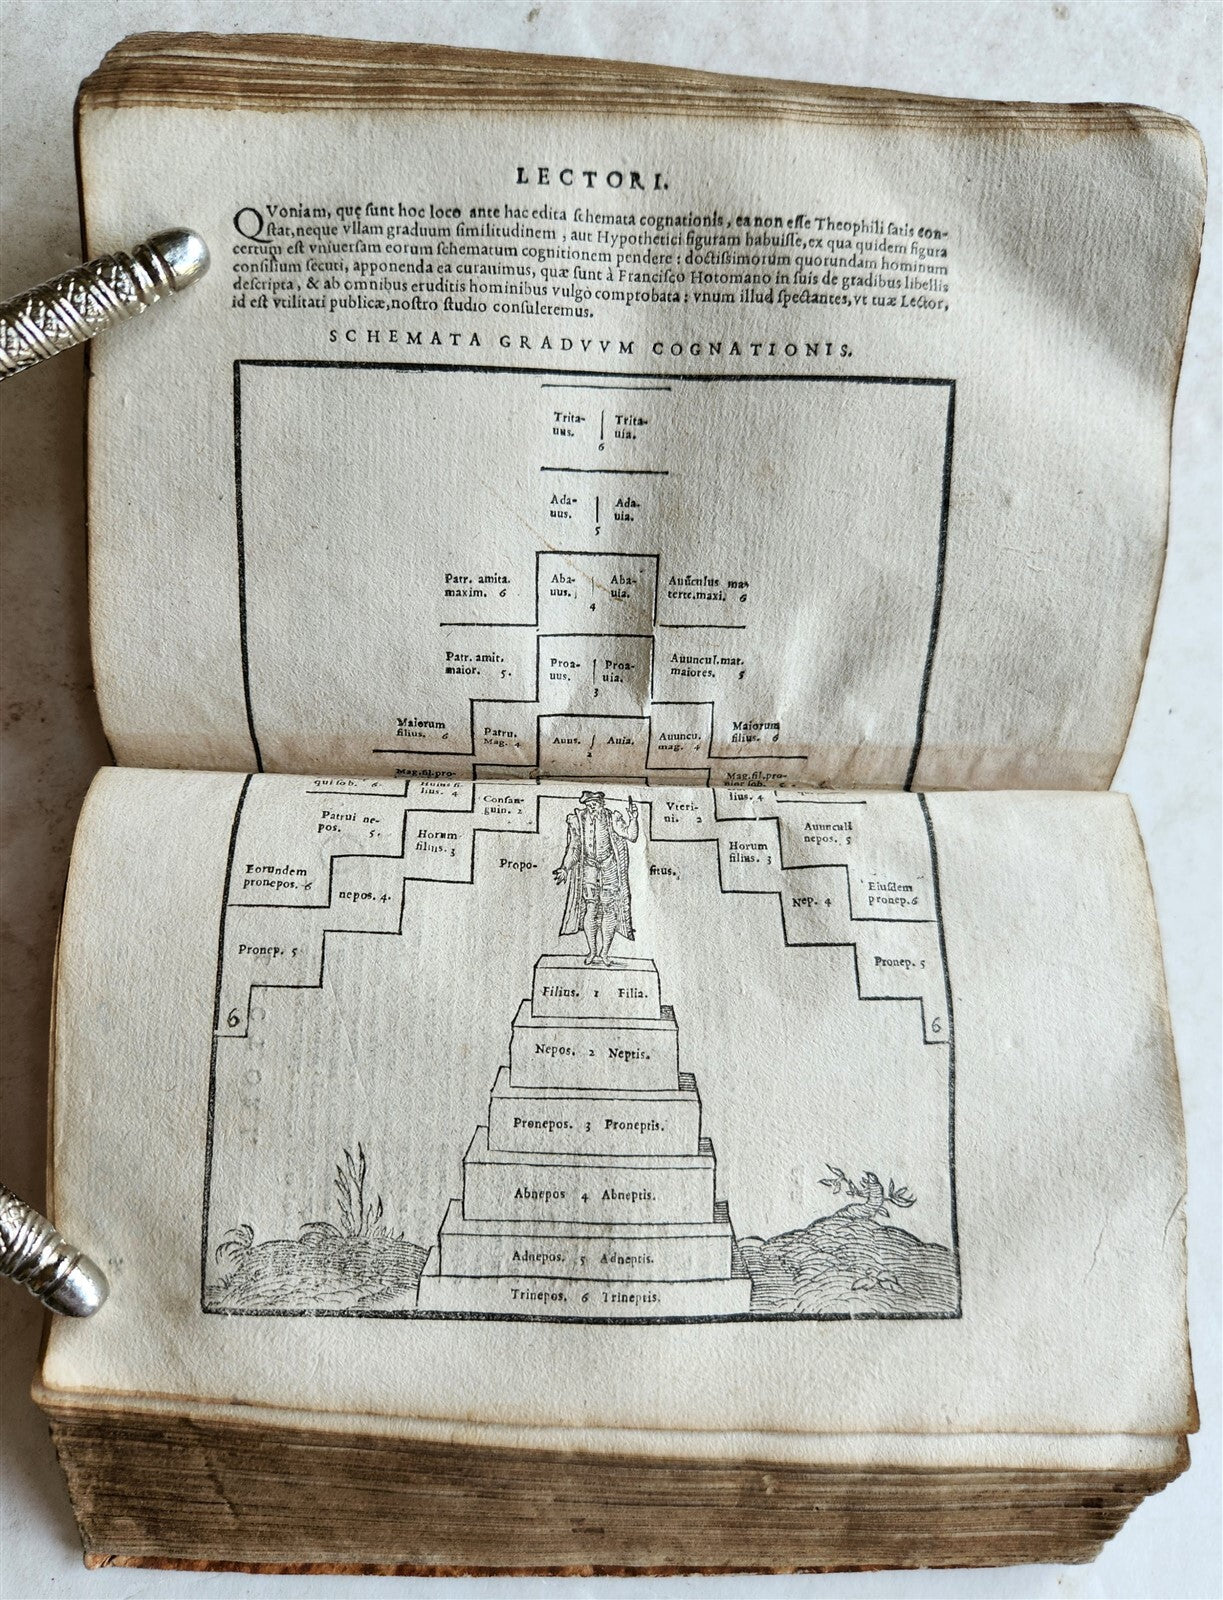 LECTORI.
QVoniam, quę ſunt hoc loco ante hac edita ſchemata cognationis, ea non eſſe Theophili ſatis con-
ſtat, neque vllam graduum ſimilitudinem, aut Hypothetici figuram habuiſſe, ex qua quidem figura
certum eſt vniuerſam eorum ſchematum cognitionem pendere: doctiſſimorum quorundam hominum
conſilium ſecuti, apponenda ea curauimus, quæ ſunt à Franciſco Hotomano in ſuis de gradibus libellis
deſcripta, & ab omnibus eruditis hominibus vulgò comprobata: vnum illud ſpectantes, vt tuæ Lector,
id eſt vtilitati publicæ, noſtro ſtudio conſuleremus.
SCHEMATA GRADVVM COGNATIONIS.
Trita- | Trita-
uus. uia.
6
Ada- | Ada-
uus. uia.
5
Patr. amita. Aba- | Aba- Auũculus ma-
maxim. 6 uus. uia. terte.maxi. 6
4
Patr. amit. Proa- | Proa- Auuncul.mat.
maior. 5. uus. uia. maiores. 5
3
Maiorum Patru. Auus. / Auia. Auuncu. Maiorum
filius. 6 Mag. 4 2 mag. 4 filius. 6
Mag.fil.pro- Mag.fil.pro-
qui ſob. 6 lius. 4 lius. 4
Patrui ne- Conſan- Vteri- Auunculi
pos. 5. guin. 2 ni. 2 nepos. 5
Horum Horum
filius. 3 filius. 3
Eorundem Propo- ſitus. Eiuſdem
pronepos. 6 nepos. 4. Nep. 4 pronep. 6
Pronep. 5 Pronep. 5
6 6
Filius. 1 Filia.
Nepos. 2 Neptis.
Pronepos. 3 Proneptis.
Abnepos 4 Abneptis.
Adnepos. 5 Adneptis.
Trinepos. 6 Trineptis.